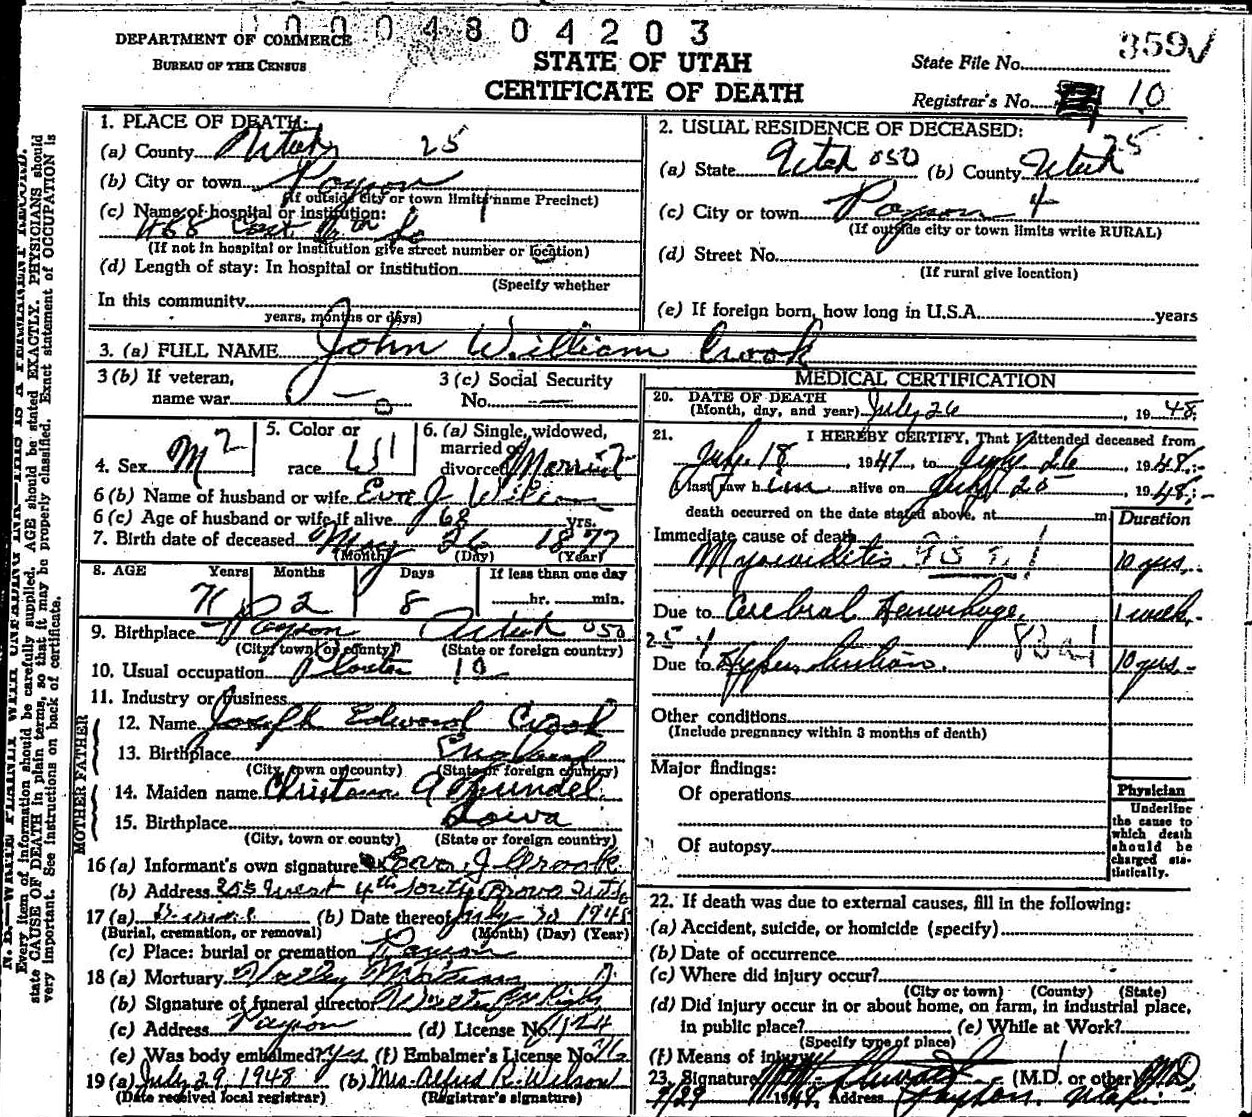 0004804203
359
DEPARTMENT OF COMMERCE
BUREAU OF THE CENSUS
STATE OF UTAH
CERTIFICATE OF DEATH
State File No.
Registrar's No. 10
N. B.—WRITE PLAINLY WITH UNFADING INK—THIS IS A PERMANENT RECORD.
Every item of information should be carefully supplied. AGE should be stated EXACTLY. PHYSICIANS should
state CAUSE OF DEATH in plain terms, so that it may be properly classified. Exact statement of OCCUPATION is
very important. See instructions on back of certificate.
1. PLACE OF DEATH:
(a) County Utah 25
(b) City or town Payson
(If outside city or town limits name Precinct)
(c) Name of hospital or institution:
468 East 6th So
(If not in hospital or institution give street number or location)
(d) Length of stay: In hospital or institution
(Specify whether
In this community
years, months or days)
2. USUAL RESIDENCE OF DECEASED:
(a) State Utah 050 (b) County Utah 25
(c) City or town Payson 4
(If outside city or town limits write RURAL)
(d) Street No.
(If rural give location)
(e) If foreign born, how long in U.S.A. years
3. (a) FULL NAME John William Crook
3 (b) If veteran,
name war
3 (c) Social Security
No. —
4. Sex M 2
5. Color or
race W 1
6. (a) Single, widowed,
married or
divorced Married
6 (b) Name of husband or wife Eva J. Wilson
6 (c) Age of husband or wife if alive 68 yrs.
7. Birth date of deceased May 26 1877
(Month) (Day) (Year)
8. AGE Years Months Days If less than one day
71 2 8 hr. min.
9. Birthplace Payson Utah 050
(City, town or county) (State or foreign country)
10. Usual occupation 10
11. Industry or business
FATHER
12. Name Joseph Edward Crook
13. Birthplace England
(City, town or county) (State or foreign country)
MOTHER
14. Maiden name
15. Birthplace Iowa
(City, town or county) (State or foreign country)
16 (a) Informant's own signature Eva J Crook
(b) Address 205 West 4th South Provo Utah
17 (a) (b) Date thereof July 30 1948
(Burial, cremation, or removal) (Month) (Day) (Year)
(c) Place: burial or cremation Payson
18 (a) Mortuary Valley Mortuary
(b) Signature of funeral director
(c) Address Payson (d) License No.
(e) Was body embalmed? yes (f) Embalmer's License No.
19 (a) July 29, 1948 (b) Mrs. Alfred R. Wilson
(Date received local registrar) (Registrar's signature)
MEDICAL CERTIFICATION
20. DATE OF DEATH
(Month, day, and year) July 26, 1948.
21. I HEREBY CERTIFY, That I attended deceased from
July 18, 1947, to July 26, 1948.
I last saw him alive on July 25, 1948;
death occurred on the date stated above, at m
Duration
Immediate cause of death
Myocarditis 10 yrs.
Due to Cerebral Hemorrhage, 1 week
83a1
Due to Hypertention. 10 yrs.
Other conditions
(Include pregnancy within 3 months of death)
Major findings:
Of operations
Of autopsy
Physician
Underline
the cause to
which death
should be
charged sta-
tistically.
22. If death was due to external causes, fill in the following:
(a) Accident, suicide, or homicide (specify)
(b) Date of occurrence
(c) Where did injury occur?
(City or town) (County) (State)
(d) Did injury occur in or about home, on farm, in industrial place,
in public place? (e) While at Work?
(Specify type of place)
(f) Means of injury
23. Signature (M.D. or other) MD
7/29 1948 Address Payson, Utah.